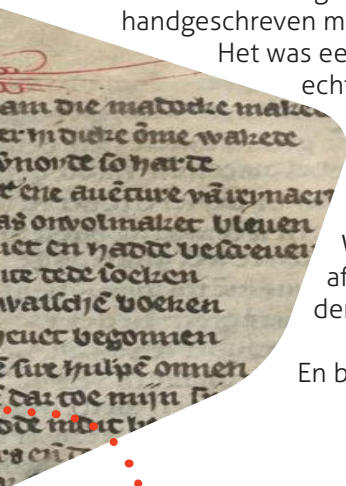 handgeschreven m
Het was ee
echt
am die madocke make
er hi dicke ōme wakede
v̄noyde so harde
ene auēture vā reynaer
as onvolmaket bleuen
iet en hadde bescreuen
ite dede soeken
walschē boeken
euet begonnen
ē sire hulpē onnen
ē dar toe mijn
W
af
der
En b